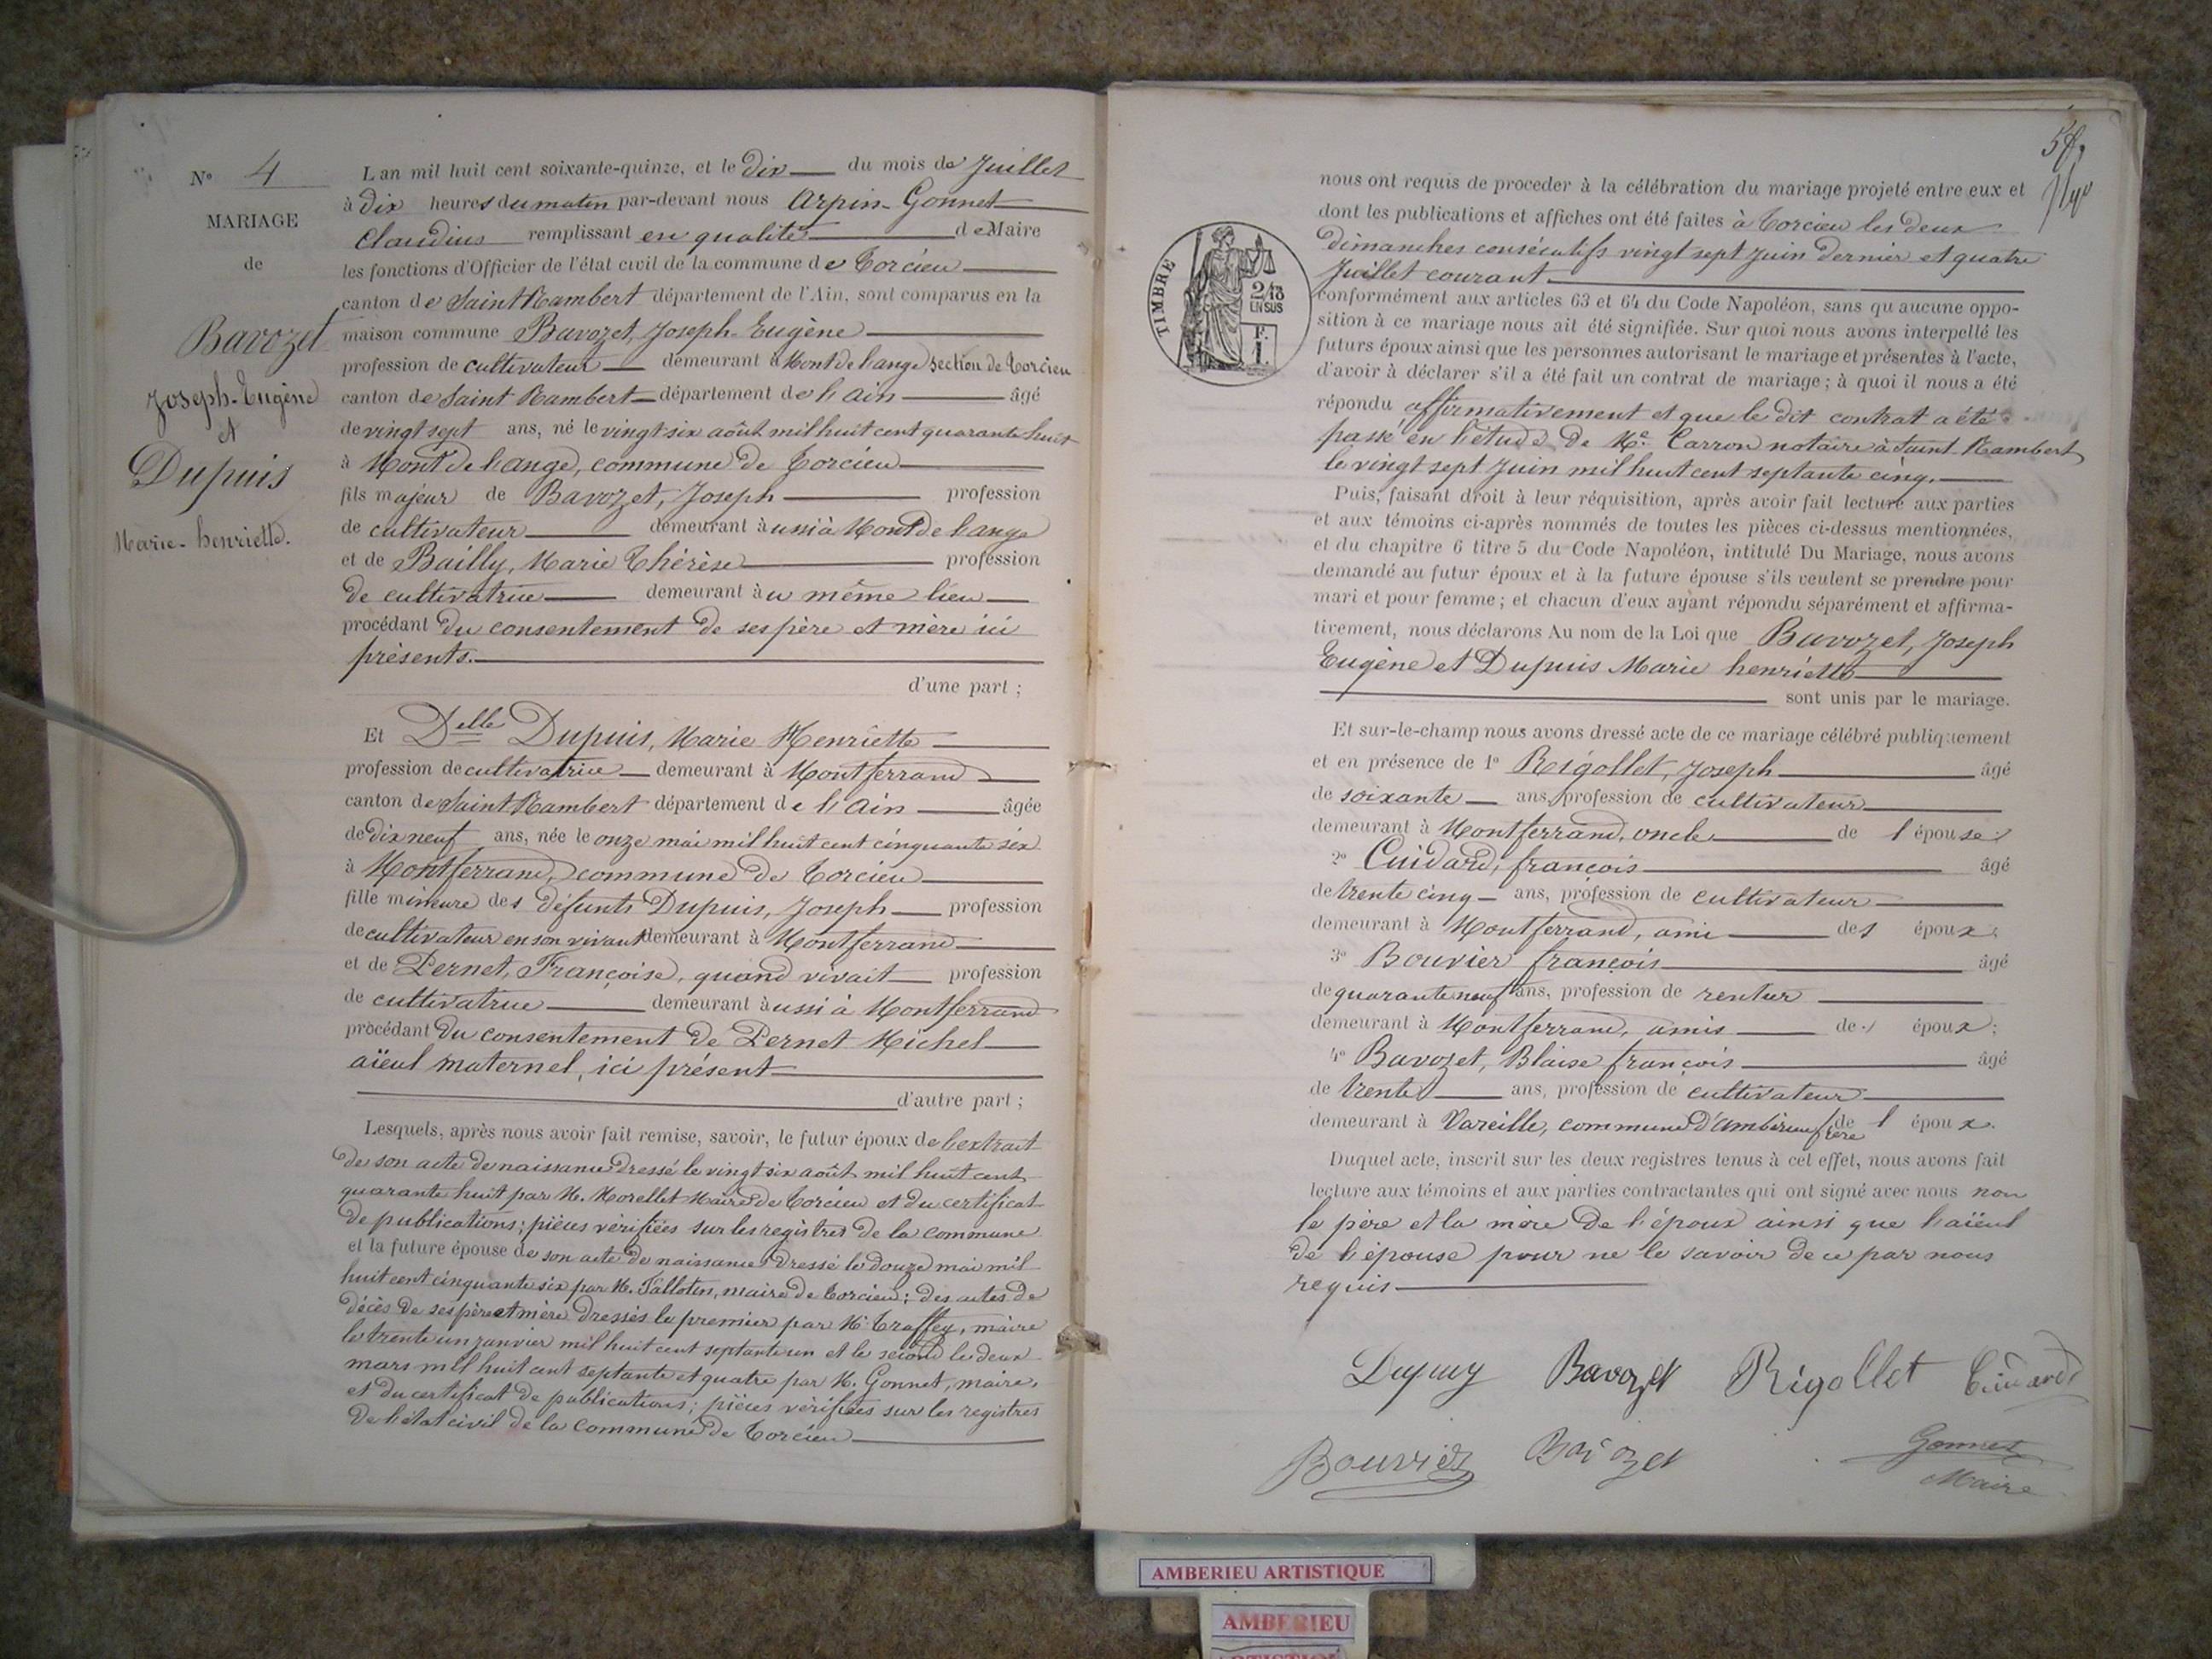 N° 4
MARIAGE
de
Bavozet
Joseph-Eugène
et
Dupuis
Marie-henriette.
L an mil huit cent soixante-quinze, et le Dix du mois de Juillet
à Dix heures du matin par-devant nous Arpin-Gonnet
Claudius remplissant en qualité de Maire
les fonctions d'Officier de l'état civil de la commune de Torcieu
canton de Saint Rambert département de l'Ain, sont comparus en la
maison commune Bavozet, Joseph-Eugène
profession de cultivateur demeurant à Mont de l'ange section de Torcieu
canton de Saint Rambert département de l'ain âgé
de vingt sept ans, né le vingt six août mil huit cent quarante huit
à Mont de l'ange, commune de Torcieu
fils majeur de Bavozet, Joseph profession
de cultivateur demeurant aussi à Mont de l'ange
et de Bailly, Marie Thérèse profession
de cultivatrice demeurant au même lieu
procédant du consentement de ses père et mère ici
présents.
d'une part ;
Et Delle Dupuis, Marie Henriette
profession de cultivatrice demeurant à Montferrand
canton de Saint Rambert département de l'Ain âgée
de Dix neuf ans, née le onze mai mil huit cent cinquante six
à Montferrand, commune de Torcieu
fille mineure des défunts Dupuis, Joseph profession
de cultivateur en son vivant demeurant à Montferrand
et de Pernet, Françoise, quand vivait profession
de cultivatrice demeurant aussi à Montferrand
procédant du consentement de Pernet Michel
aïeul maternel, ici présent
d'autre part ;
Lesquels, après nous avoir fait remise, savoir, le futur époux de l'extrait
de son acte de naissance dressé le vingt six août mil huit cent
quarante huit par M. Morellet Maire de Torcieu et du certificat
de publications ; pièces vérifiées sur les registres de la commune
et la future épouse de son acte de naissance dressé le douze mai mil
huit cent cinquante six par M. Talloten, maire de Torcieu ; des actes de
décès de ses père et mère dressés le premier par M. Traffey, maire
le trente un janvier mil huit cent septante un et le second le deux
mars mil huit cent septante et quatre par M. Gonnet, maire,
et du certificat de publications ; pièces vérifiées sur les registres
de l'état civil de la commune de Torcieu
TIMBRE
2/10
EN SUS
nous ont requis de proceder à la célébration du mariage projeté entre eux et
dont les publications et affiches ont été faites à Torcieu les deux
dimanches consécutifs vingt sept juin dernier et quatre
Juillet courant
conformément aux articles 63 et 64 du Code Napoléon, sans qu aucune oppo-
sition à ce mariage nous ait été signifiée. Sur quoi nous avons interpellé les
futurs époux ainsi que les personnes autorisant le mariage et présentes à l'acte,
d'avoir à déclarer s'il a été fait un contrat de mariage ; à quoi il nous a été
répondu affirmativement et que le dit contrat a été
passé en l'étude de Me. Carron notaire à Saint-Rambert
le vingt sept Juin mil huit cent septante cinq.
Puis, faisant droit à leur réquisition, après avoir fait lecture aux parties
et aux témoins ci-après nommés de toutes les pièces ci-dessus mentionnées,
et du chapitre 6 titre 5 du Code Napoléon, intitulé Du Mariage, nous avons
demandé au futur époux et à la future épouse s'ils veulent se prendre pour
mari et pour femme ; et chacun d'eux ayant répondu séparément et affirma-
tivement, nous déclarons Au nom de la Loi que Bavozet, Joseph
Eugène et Dupuis Marie henriette
sont unis par le mariage.
Et sur-le-champ nous avons dressé acte de ce mariage célébré publiquement
et en présence de 1° Rigollet, Joseph âgé
de soixante ans, profession de cultivateur
demeurant à Montferrand, oncle de l épouse ;
2° Cuidard, françois âgé
de trente cinq ans, profession de cultivateur
demeurant à Montferrand, ami des époux ;
3° Bouvier françois âgé
de quarante neuf ans, profession de rentier
demeurant à Montferrand, amis des époux ;
4° Bavozet, Blaise françois âgé
de trente ans, profession de cultivateur
demeurant à Vareille, commune d'ambérieu frère de l époux.
Duquel acte, inscrit sur les deux registres tenus à cet effet, nous avons fait
lecture aux témoins et aux parties contractantes qui ont signé avec nous non
le père et la mère de l'époux ainsi que l'aïeul
de l'épouse pour ne le savoir de ce par nous
requis
Dupuy Bavozet Rigollet Cuidard
Bouvier Bavozet Gonnet
Maire
AMBERIEU ARTISTIQUE
AMBERIEU
ARTISTIQUE